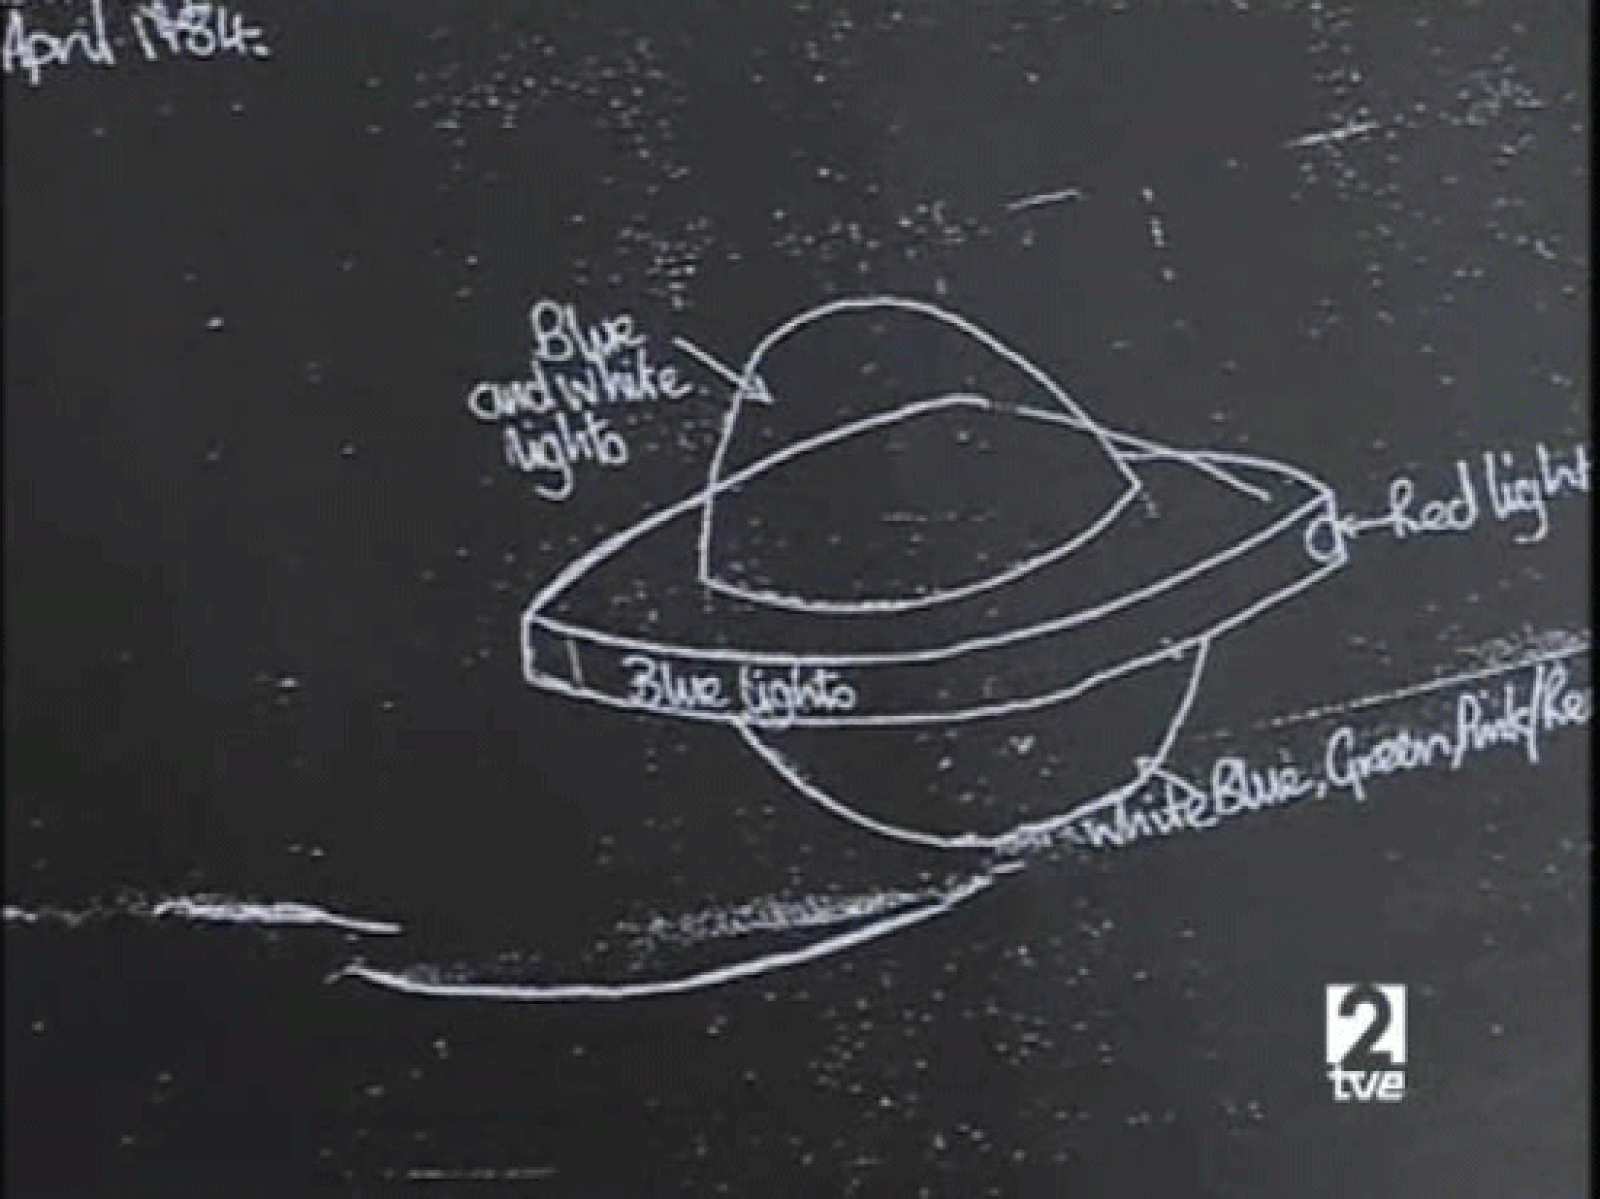 April 1984.
Blue
and white
lights
Red light
Blue lights
White Blue, Green, Pink/Re
2
tve